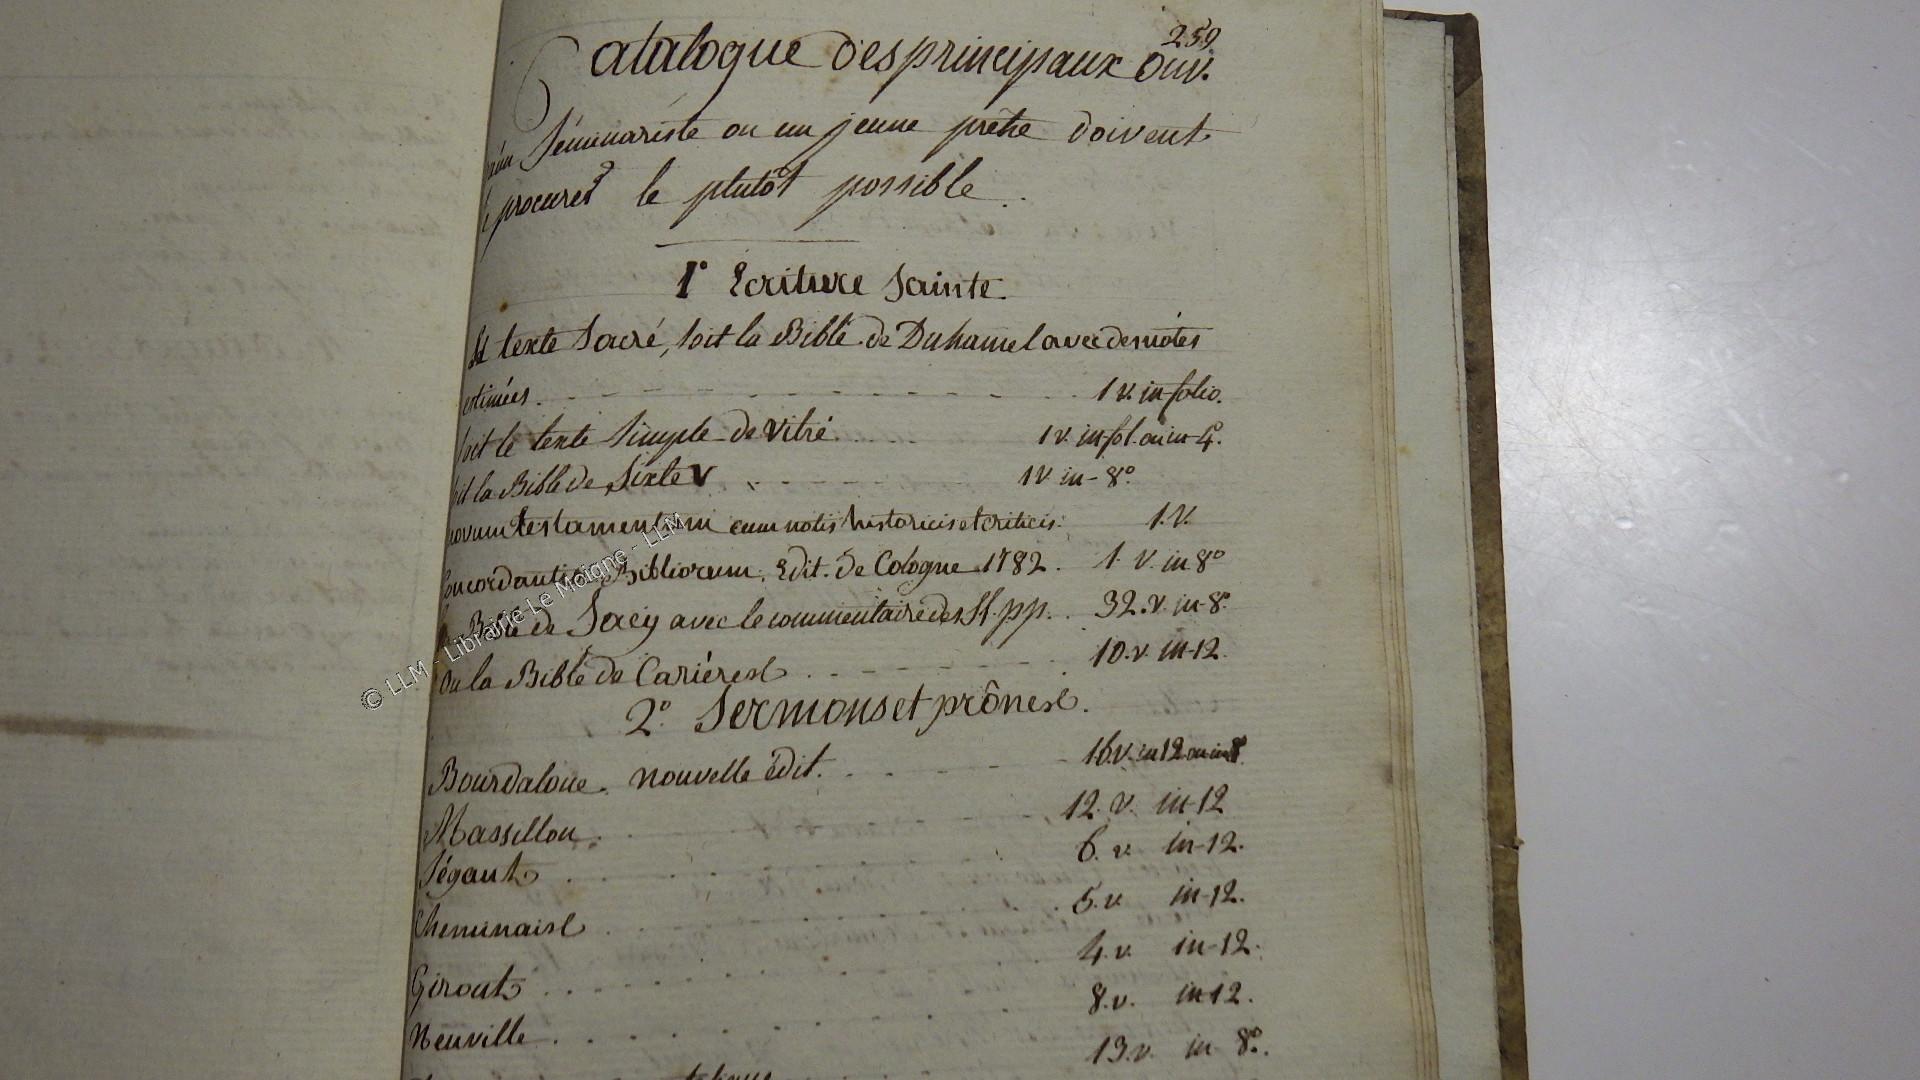 259
Catalogue des principaux Ouv.
Séminariste ou un jeune prêtre doivent
procurer le plutôt possible.
1° Ecriture Sainte.
texte Sacré, soit la Bible de Duhamel avec des notes
estimées. 1 v. in-folio.
soit le texte simple de Vitré 1 v. in fol. ou in-4°.
soit la Bible de Sixte V 1 v. in-8°.
novum testamentum cum notis historicis et criticis. 1. v.
Concordantiæ Bibliorum. Edit. de Cologne 1782. 1. v. in 8°
la Bible de Sacy avec le commentaire des SS. pp. 32. v. in-8°.
Ou la Bible de Carières 10. v. in-12.
2°. Sermons et prônes.
Bourdaloue. nouvelle édit. 16 v. in 12 ou in 8°
Massillon. 12. v. in-12
Ségaut 6. v. in-12.
Cheminais 5. v. in-12.
Girout 4. v. in-12.
Neuville 8. v. in-12.
13. v. in 8°.
© LLM - Librairie Le Moigne - LLM